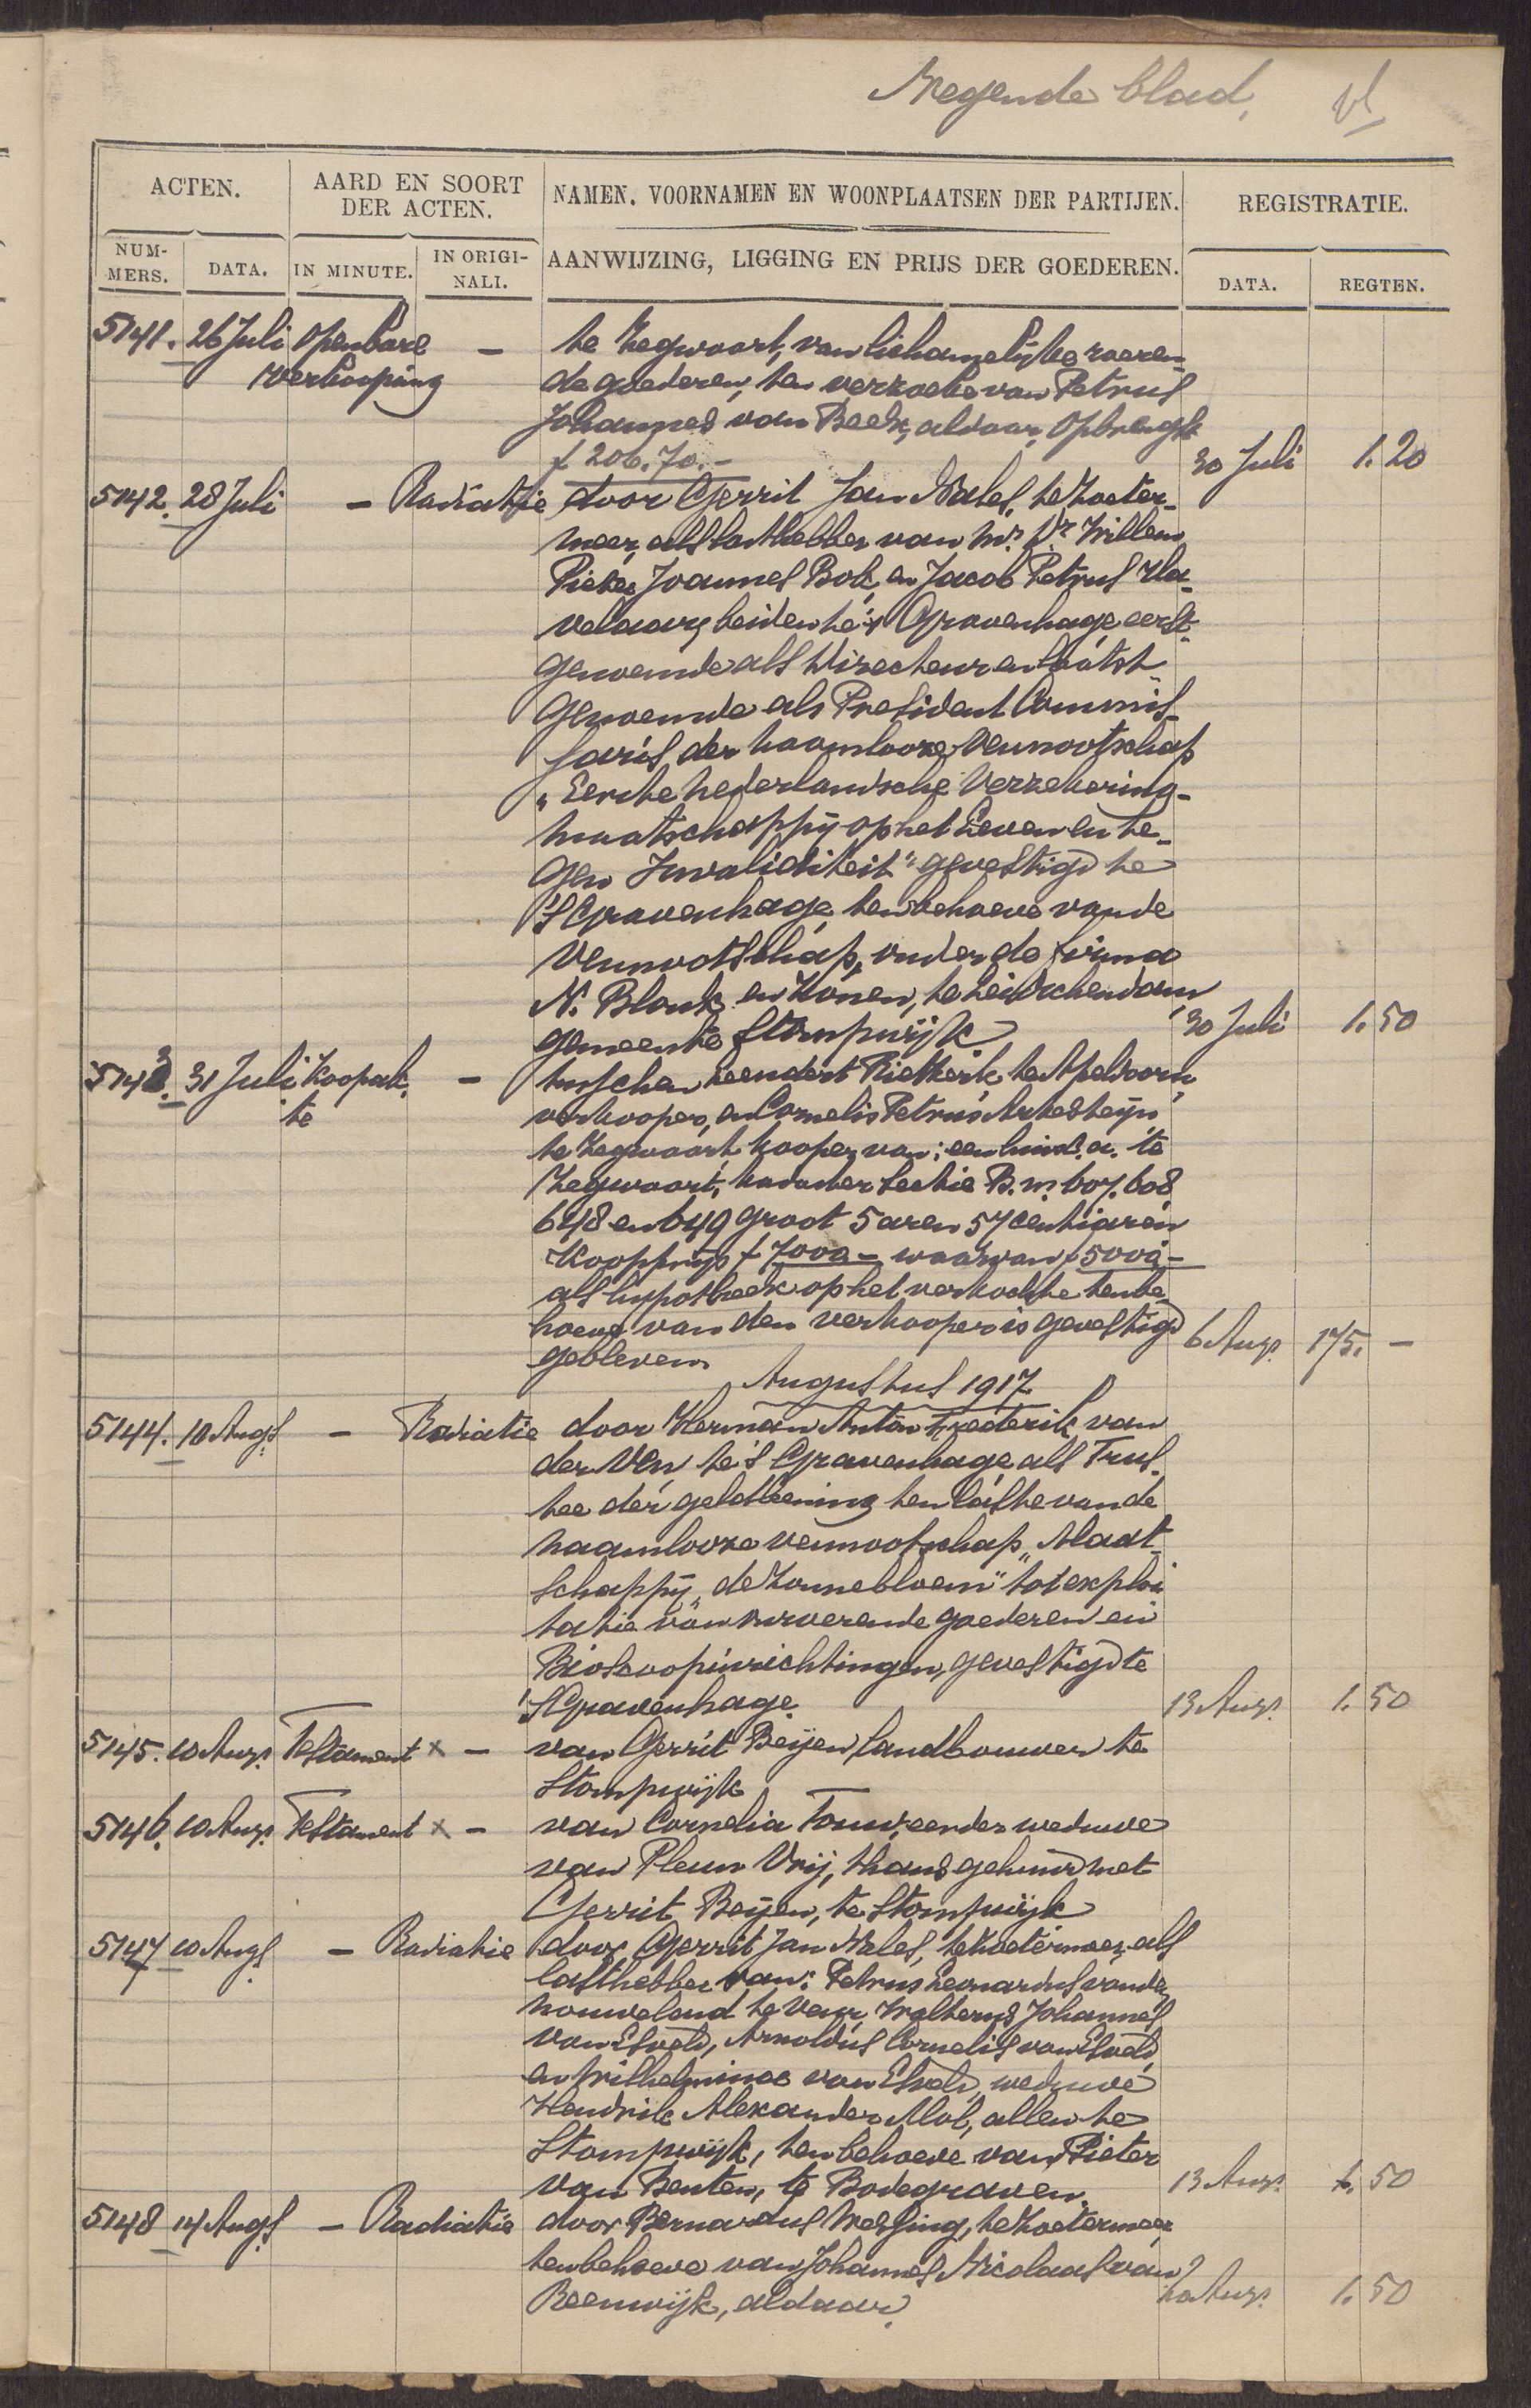 Negende blad.
ACTEN. AARD EN SOORT DER ACTEN. NAMEN. VOORNAMEN EN WOONPLAATSEN DER PARTIJEN. REGISTRATIE.
NUM-MERS. DATA. IN MINUTE. IN ORIGI-NALI. AANWIJZING, LIGGING EN PRIJS DER GOEDEREN. DATA. REGTEN.
5141. 26 Juli Openbare — te Zegwaart, van lichamelijke roeren-
verkooping de goederen, ten verzoeke van Petrus
Johannes van Beek, aldaar, Opbrengst
f 206.70.- 30 Juli 1.20
5142. 28 Juli — Radiatie door Gerrit Jan Nales, te Zoeter-
meer, als lasthebber van Mr. Dr. Willem
Pieter Joannes Bok, en Jacob Petrus Ha-
velaar, beiden te 's Gravenhage, eerst-
genoemde als Directeur en laatst-
genoemde als President Commis-
saris der naamlooze Vennootschap
"Eerste Nederlandsche Verzekering-
maatschappij op het Leven en te-
gen Invaliditeit" gevestigd te
's Gravenhage, ten behoeve van de
Vennootschap, onder de firma
N. Blonk en Zonen, te Leidschendam
gemeente Stompwijk 30 Juli 1.50
5143. 31 Juli Koopak- — tusschen Leendert Rietkerk te Apeldoorn,
te verkooper, en Cornelis Petrus Arkesteijn
te Zegwaart, kooper, van: een huis c.a. te
Zegwaart, kadaster Sectie B. n. 607. 608
648 en 649 groot 5 aren 57 centiaren
Koopprijs f 7000 - waarvan f 5000 -
als hypotheek op het verkochte ten be-
hoeve van den verkooper is gevestigd
gebleven. 6 Aug. 175. -
Augustus 1917
5144. 10 Augs. — Radiatie door Herman Anton Frederik van
der Ven, te 's Gravenhage als Trus-
tee der geldleening ten laste van de
naamlooze vennootschap "Maat-
schappij "de Zonnebloem" tot exploi
tatie van onroerende goederen en
Bioscoopinrichtingen, gevestigd te
's Gravenhage. 13 Aug. 1.50
5145. 10 Aug. Testament x — van Gerrit Beijen, landbouwer te
Stompwijk
5146. 10 Aug. Testament x — van Cornelia Touw, eerder weduwe
van Pleun Vrij, thans gehuwd met
Gerrit Beijen, te Stompwijk
5147 10 Augs. — Radiatie door Gerrit Jan Nales, te Zoetermeer, als
lasthebber van: Petrus Leonardus van den
Nouweland te Veur, Walterus Johannes
van Elswel, Arnoldus Cornelis van
en Wilhelmina van weduwe
Hendrik Alexander Mol, allen te
Stompwijk, ten behoeve van Pieter
van Benten, te Bodegraven. 13 Aug. 1.50
5148 14 Augs. — Radiatie door Bernardus Wessing, te Zoetermeer
ten behoeve van Johannes Nicolaas van
Reeuwijk, aldaar. 20 Aug. 1.50